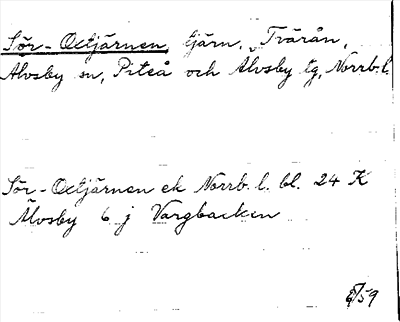 Sör-Oxtjärnen, tjärn, Tvärån,
Älvsby sn, Piteå och Älvsby tg, Norrb.l.
Sör-Oxtjärnen ek Norrb. l. bl. 24 K
Älvsby 6 j Vargbacken
/59